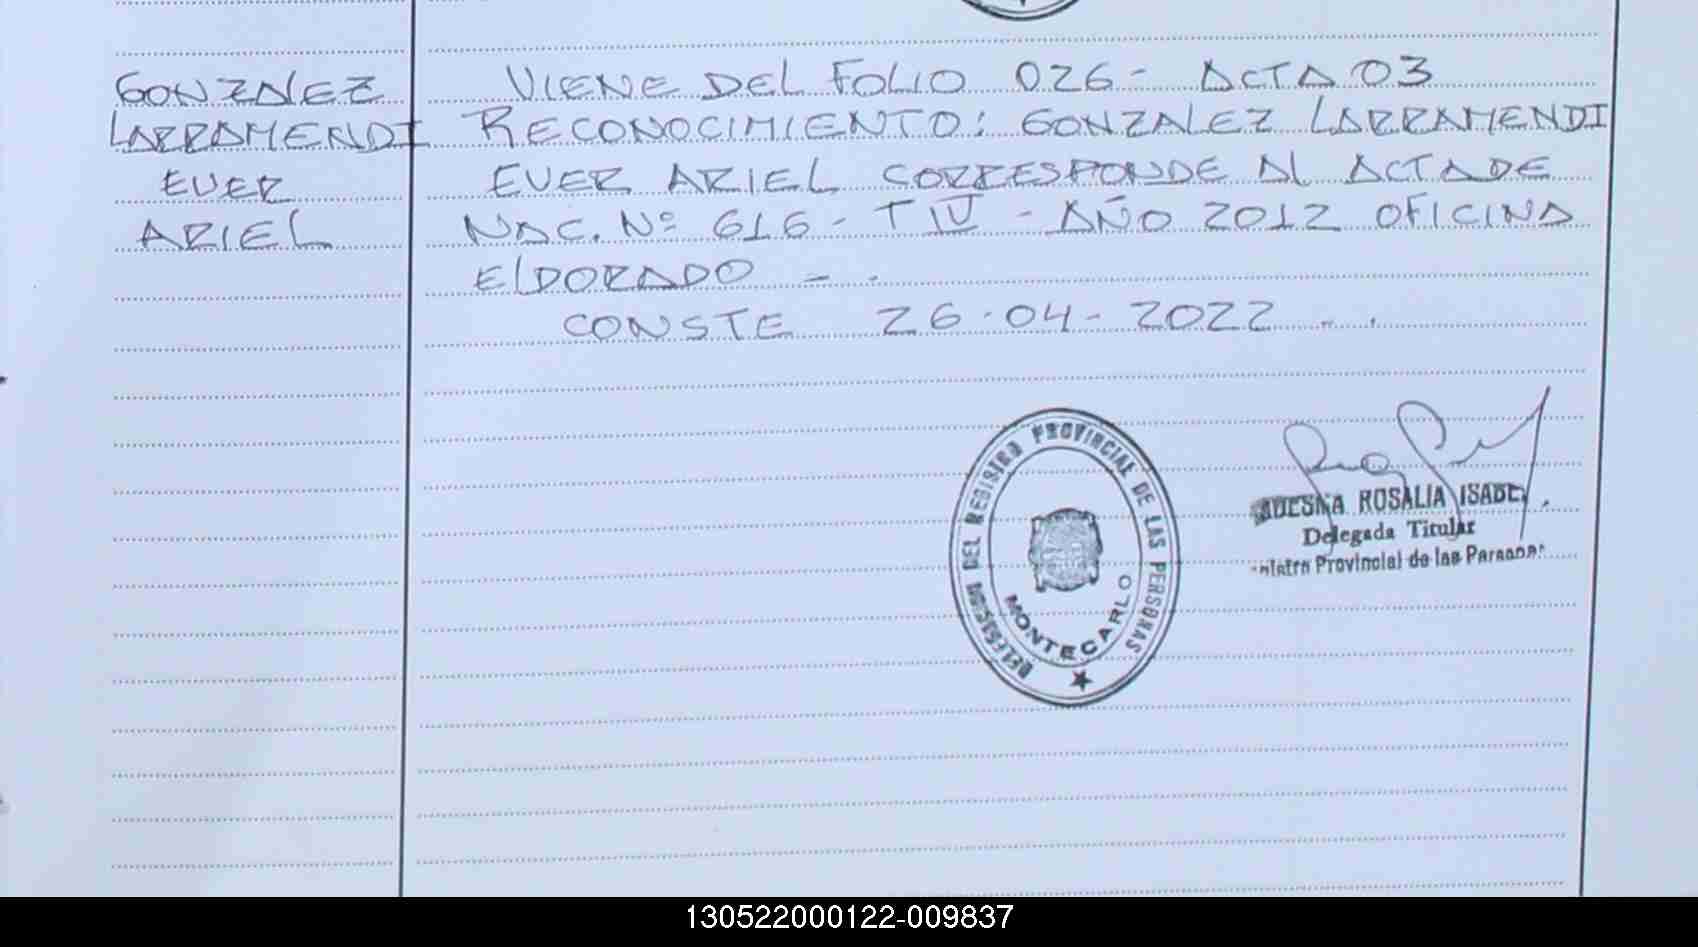 GONZALEZ
LARRAMENDI
EVER
ARIEL
VIENE DEL FOLIO 026 - ACTA 03
RECONOCIMIENTO: GONZALEZ LARRAMENDI
EVER ARIEL CORRESPONDE AL ACTA DE
NAC. Nº 616 - T IV - AÑO 2012 OFICINA
ELDORADO - .
CONSTE 26-04-2022 - .
DELEGACION DEL REGISTRO PROVINCIAL DE LAS PERSONAS
MONTECARLO
ROSALIA ISABEL
Delegada Titular
Provincial de las Personas
130522000122-009837